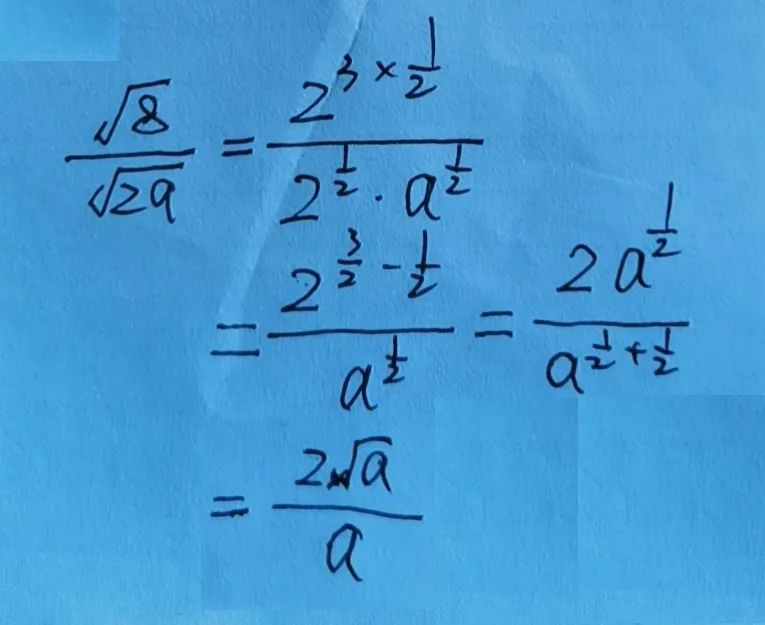 √8/√2a = 2^(3×1/2)/(2^(1/2)·a^(1/2))
= 2^(3/2-1/2)/a^(1/2) = 2a^(1/2)/a^(1/2+1/2)
= 2√a/a